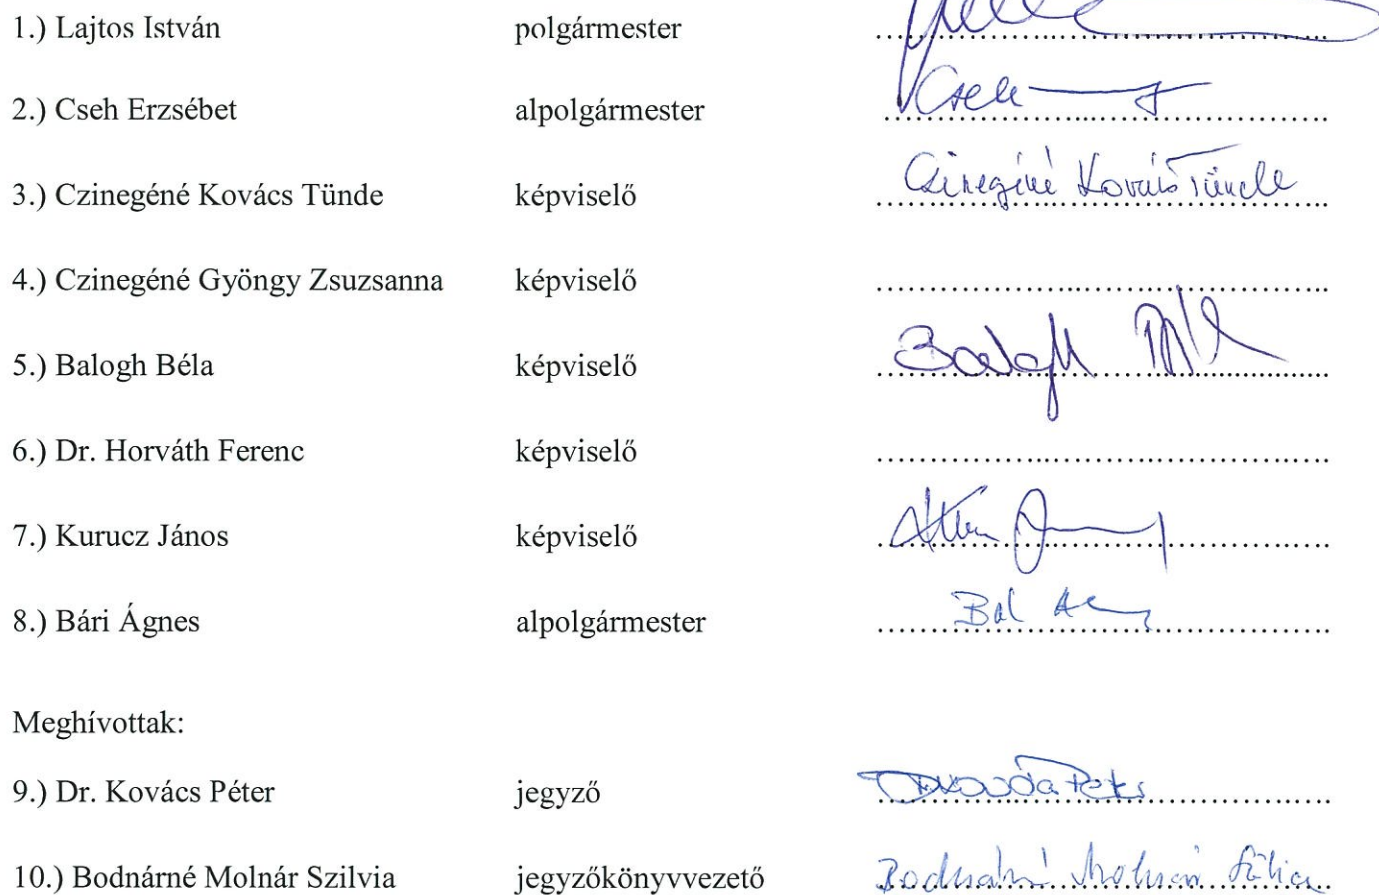 1.) Lajtos István polgármester ……………………………………
2.) Cseh Erzsébet alpolgármester Cseh ……………………………………
3.) Czinegéné Kovács Tünde képviselő Czinegéné Kovács Tünde ……………………………………
4.) Czinegéné Gyöngy Zsuzsanna képviselő ……………………………………
5.) Balogh Béla képviselő Balogh ……………………………………
6.) Dr. Horváth Ferenc képviselő ……………………………………
7.) Kurucz János képviselő ……………………………………
8.) Bári Ágnes alpolgármester ……………………………………
Meghívottak:
9.) Dr. Kovács Péter jegyző Dr Kovács Péter ……………………………………
10.) Bodnárné Molnár Szilvia jegyzőkönyvvezető Bodnárné Molnár Szilvia ……………………………………